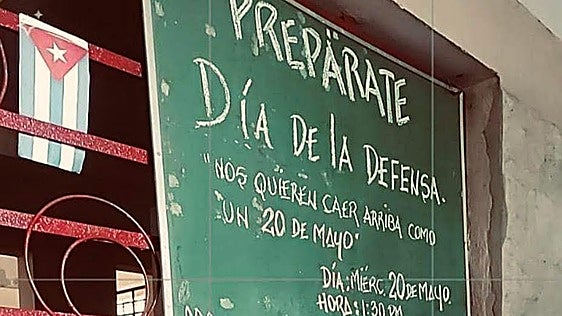 PREPÄRATE
DÍA DE LA DEFENSA.
"NOS QUIEREN CAER ARRIBA COMO
"UN 20 DE MAYO"
DÍA: MIÉRC 20 DE MAYO.
HORA: 1:30 PM